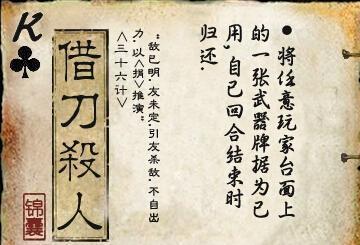 ● 将任意玩家台面上
的一张武器牌据为已
用,自己回合结束时
归还.
“敌已明.友未定.引友杀敌.不自出
力.以<损>推演”
<三十六计>
K
借刀殺人
锦囊